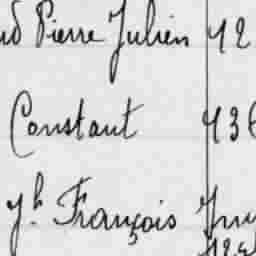 Pierre Julien 42
Constant 436
Jh François